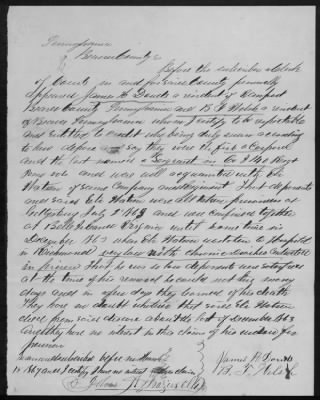 Pennsylvania
County
Before the subscriber a Clerk
of Courts in and for said County personally
appeared James H. a resident of
County Pennsylvania and B. F. a resident
of Pennsylvania whom I certify to be reputable
and entitled to credit who being duly sworn according
to law depose say they were the first a Corporal
and the last named a Sergeant in Co I 140 Regt
Penn vols and was well acquainted with
Watson of same Company and Regiment that deponents
and said Watson were all taken prisoners at
Gettysburg July 2 1863 and was confined together
at Belle Island Virginia until some time in
December 1863 when Watson was taken to Hospital
in Richmond very low with chronic Diarrhea contracted
in prison that he was so low deponents was satisfied
at the time of his removal he could not live many
days and in a few days they learned of his death
They have no doubt whatever that said Watson
died from said disease about the last of December 1863
and they have no interest in the claim of his widow for
pension
Sworn and subscribed before me
1867 and I certify I have no interest in claim
James H
B. F.